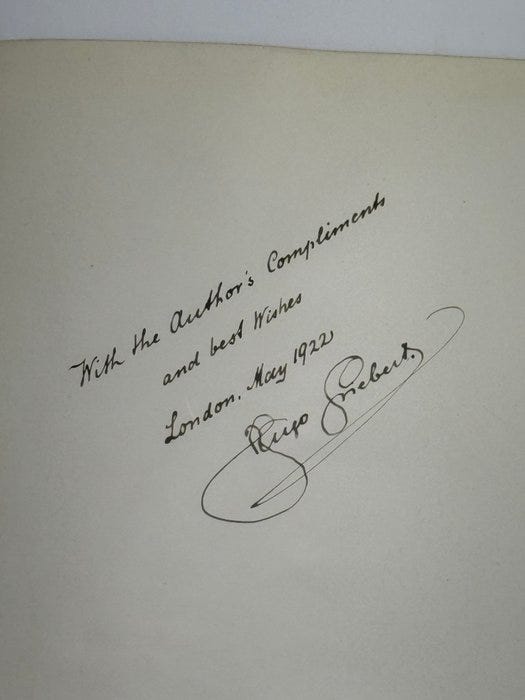 With the Author's Compliments
and best Wishes
London, May 1922
Hugo Griebert.